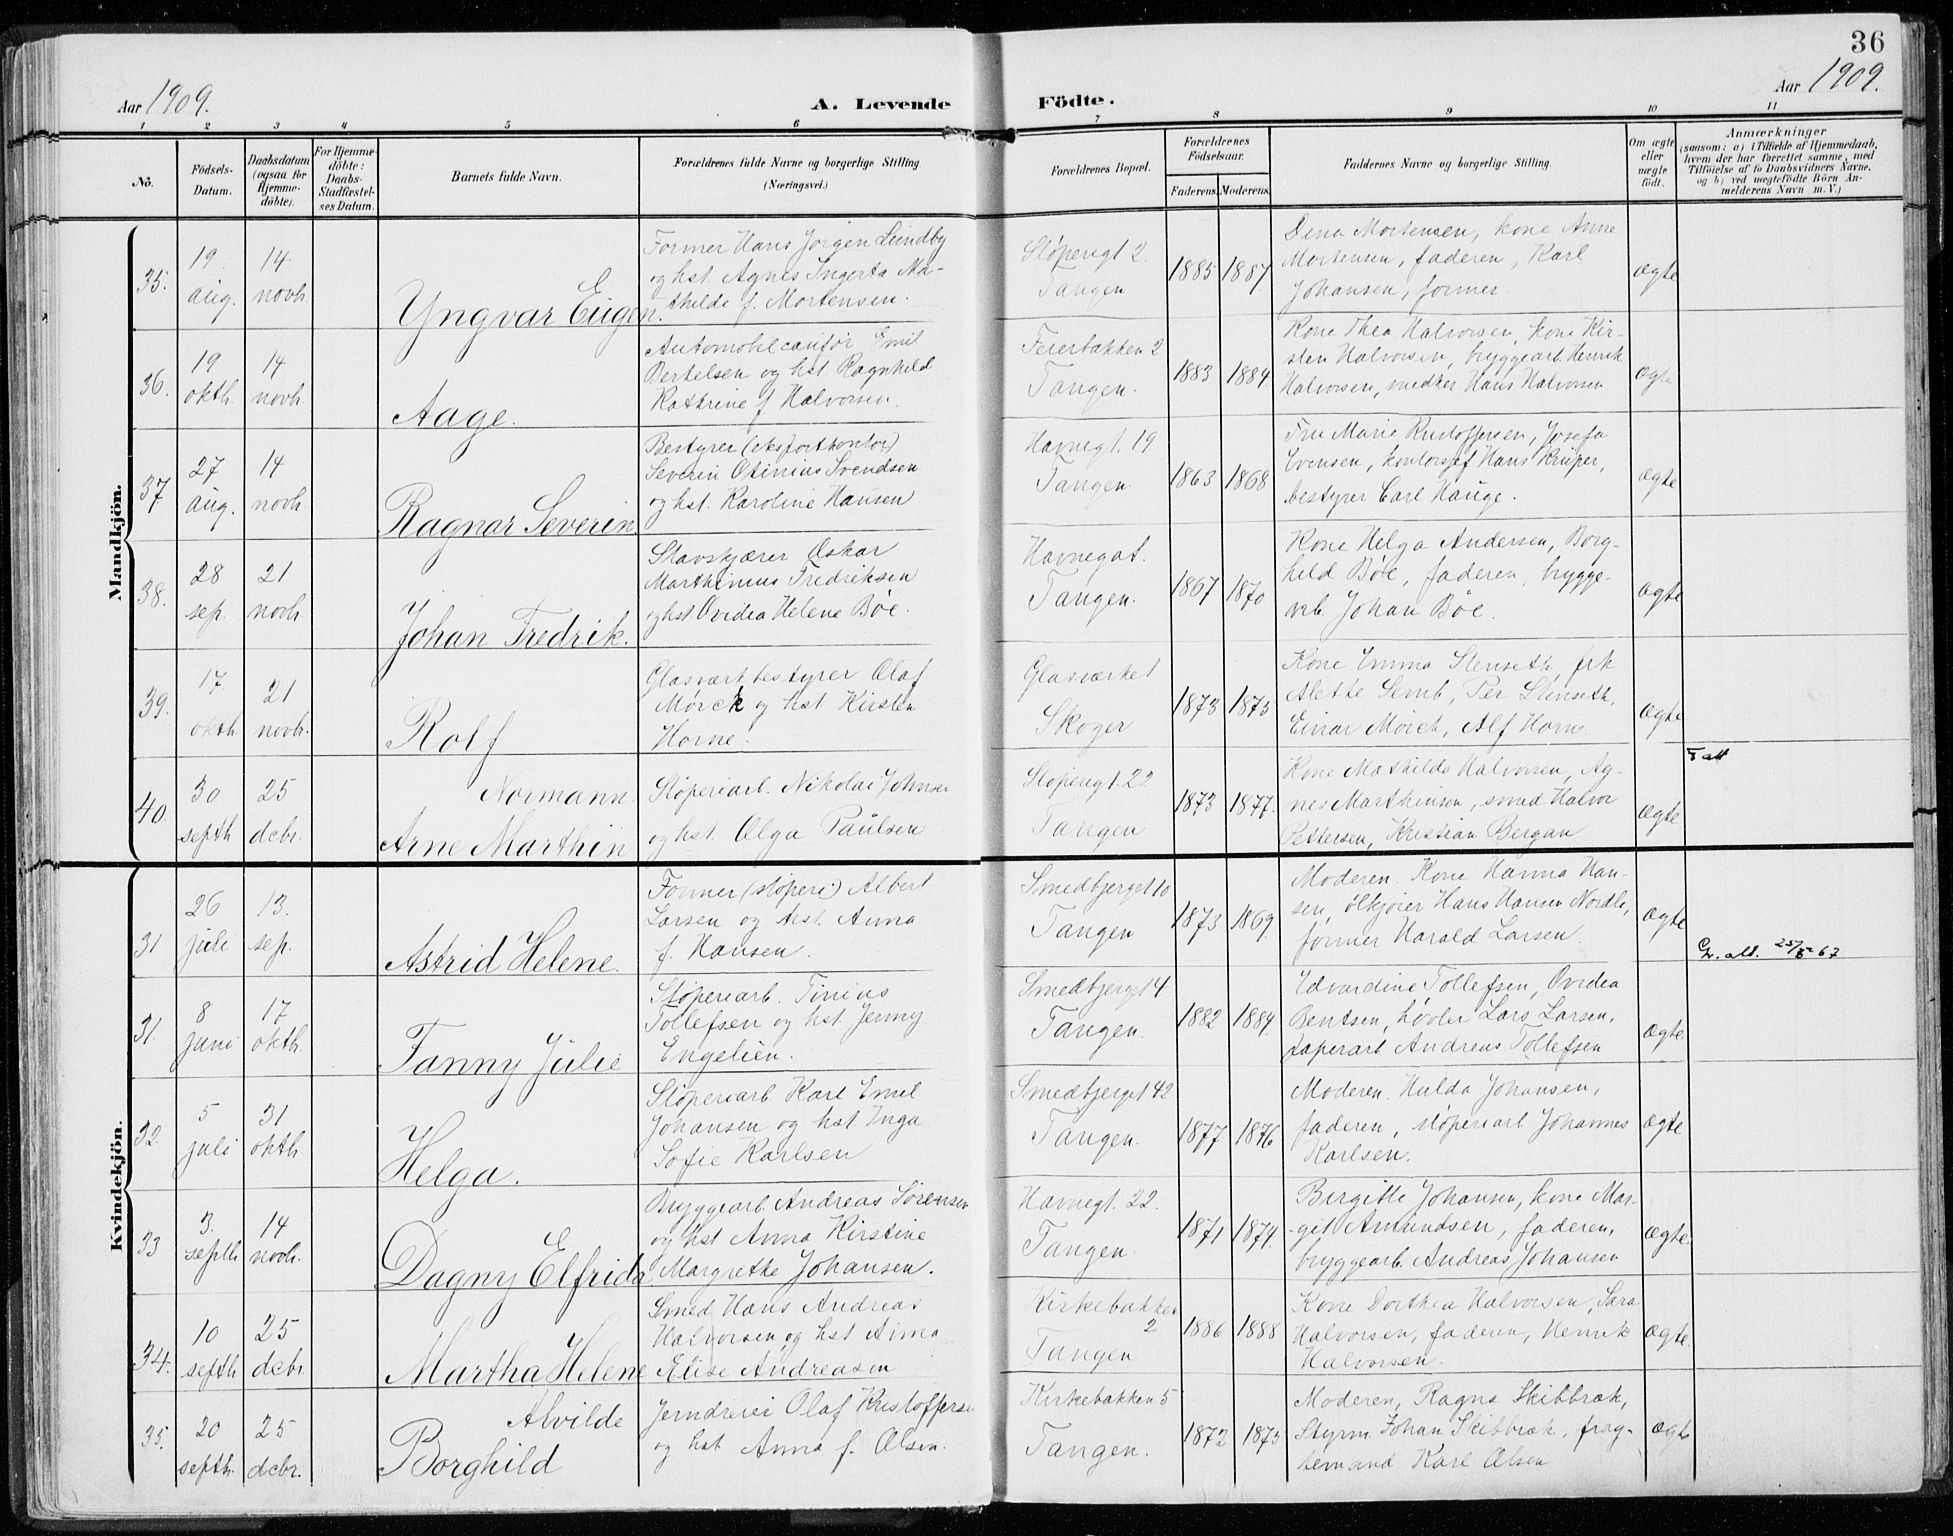 36
Aar 1909.
A. Levende
Födte.
Aar 1909.
1 2 3 4 5 6 7 8 9 10 11
No.
Födsels-
Datum.
Daabsdatum
(ogsaa for
Hjemme-
döbte).
For Hjemme-
döbte:
Daabs-
Stadfæstel-
ses Datum.
Barnets fulde Navn.
Forældrenes fulde Navne og borgerlige Stilling.
(Næringsvei.)
Forældrenes Bopæl.
Forældrenes
Födselsaar.
Faderens. Moderens.
Faddernes Navne og borgerlige Stilling.
Om ægte
eller
uægte
födt.
Anmærkninger
(saasom: a) i Tilfælde af Hjemmedaab,
hvem der har forrettet samme, med
Tilföielse af to Daabsvidners Navne,
og b) ved uægtefödte Börn An-
melderens Navn m. V.)
Mandkjön.
35.
19
aug.
14
novbr.
Yngvar Eugen.
Former Hans Jørgen Lundby
og hst. Agnes Ingerta Ma-
thilde f. Mortensen.
Støperigt 2.
Tangen
1885 1887
Dina Mortensen, kone Anne
Mortensen, faderen, Karl
Johansen, former
ægte
36.
19
oktb.
14
novbr.
Aage.
Automobilcaufør Emil
Bertelsen og hst Ragnhild
Kathrine f Halvorsen.
Feierbakken 2
Tangen.
1883 1884
Kone Thea Halvorsen, kone Kir-
sten Halvorsen, bryggearb Henrik
Halvorsen, snedker Hans Halvorsen
ægte
37
27
aug.
14
novbr.
Ragnar Severin.
Bestyrer (eksportkontor)
Severin Otinius Svendsen
og hst. Karoline Hansen
Havnegt. 19
Tangen
1863 1868
Fru Marie Kristoffersen, Josefa
Evensen, kontorsjef Hans Krüper,
bestyrer Carl Hauge.
ægte
38.
28
sep.
21
novbr.
Johan Fredrik.
Stavskjærer Oskar
Marthinius Fredriksen
og hst Ovidia Helene Bøe.
Havnegat.
Tangen.
1867 1870
Kone Helga Andersen, Borg-
hild Bøe, faderen, brygge-
arb Johan Bøe.
ægte
39.
17
oktb.
21
novbr.
Rolf
Glasværkbestyrer Olaf
Mørck og hst Kirsten
Horne.
Glasværket
Skoger
1873 1875
Kone Emma Stenseth, frk
Alette Semb, Per Stenseth,
Einar Mørch, Alf Horne
ægte
40.
30
septb
25
dcbr.
Normann
Arne Marthin
Støperiarb. Nikolai Johnsen
og hst. Olga Paulsen
Støperigt. 22
Tangen
1873 1877.
Kone Mathilde Halvorsen, Ag-
nes Marthinsen, smed Halvor
Pettersen, Kristian Bergan
ægte
F att
Kvindekjön.
31
26
juli
13.
sep.
Astrid Helene.
Former (støperi) Albert
Larsen og hst. Anna
f. Hansen.
Smedbjerget 10
Tangen
1873 1869.
Moderen. Kone Hanna Han-
sen, ølkjører Hans Hansen Nordli,
former Harald Larsen
ægte
31.
8
juni
17
oktb.
Fanny Julie
Støperiarb. Tinius
Tollefsen og hst. Jenny
Engelien.
Smedbjerget 4
Tangen.
1882 1884.
Edvardine Tollefsen, Ovidia
Bentsen, høvler Lars Larsen,
papirarb Andreas Tollefsen
ægte.
32.
5
juli
31
oktb
Helga.
Støperiarb. Karl Emil
Johansen og hst Inga
Sofie Karlsen
Smedbjerget 42
Tangen.
1877 1876
Moderen. Hulda Johansen,
faderen, støperiarb Johannes
Karlsen.
ægte
33
3.
septb
14
novbr.
Dagny Elfrida
Bryggearb. Andreas Sørensen
og hst Anna Kirstine
Margrethe Johansen.
Havnegt. 22.
Tangen.
1871 1874.
Birgitte Johansen, kone Mar-
git Amundsen, faderen,
bryggearb. Andreas Johansen
ægte
34.
10
septb
25
dcbr
Martha Helene
Smed Hans Andreas
Halvorsen og hst Anna
Elise Andreasen
Kirkebakken
2
Tangen
1886 1888
Kone Dorthea Halvorsen, Sara
Halvorsen, faderen, Henrik
Halvorsen.
ægte.
35.
20
septb.
25
dcbr.
Alvilde
Borghild
Jerndreier Olaf Kristoffersen
og hst Anna f. Olsen.
Kirkebakken 5
Tangen.
1872 1875
Moderen, Ragna Skibbrak,
Styrm. Johan Skibbrak, frag-
temand Karl Olsen
ægte